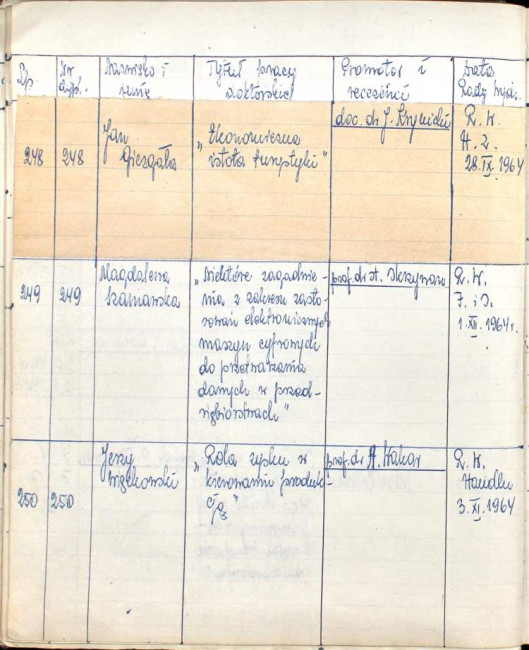 Lp. Nr dypl. Nazwisko i imię Tytuł pracy doktorskiej Promotor i recenzenci Data Rady Wydz.
248 248 Jan Giezgała „Ekonomiczna istota turystyki" doc. dr J. Krynicki R. W. H. Z. 28.IX.1964
249 249 Magdalena Szamańska „Niektóre zagadnienia z zakresu zastosowań elektronicznych maszyn cyfrowych do przetwarzania danych w przedsiębiorstwach" prof. dr St. Skrzywan R. W. F. i S. 1.XII.1964r.
250 250 Jerzy Więckowski „Rola zysku w kierowaniu produkcją" prof. dr A. Wakar R. W. Handlu 3.XI.1964